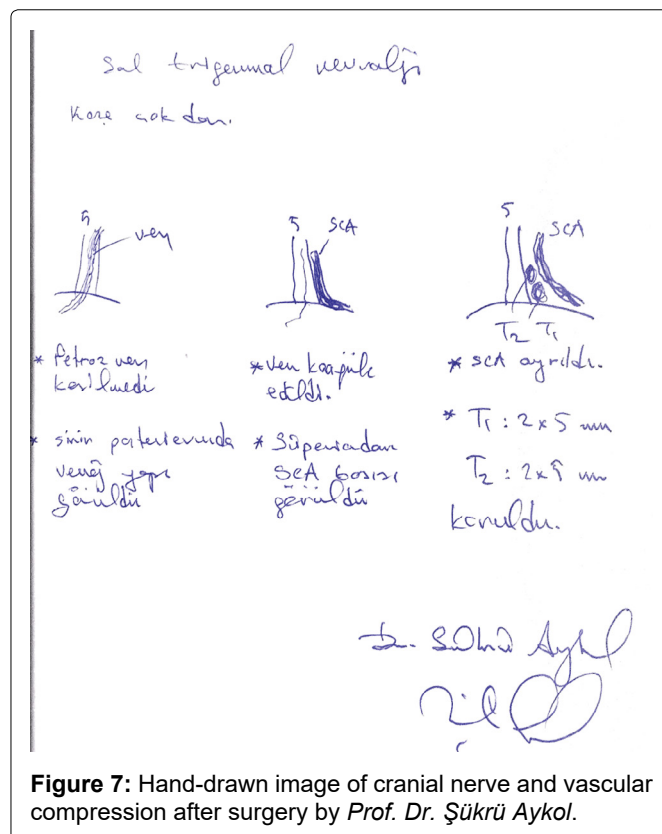 Sol trigeminal nevralji
5
ven
5
SCA
5
SCA
T2 T1
* Petroz ven
kesilmedi
* sinin posterievrunda
venöz yapı
görüldü
* ven koagüle
edildi.
* Süperiordan
SCA basısı
görüldü
* SCA ayrıldı.
* T1 : 2 x 5 mm
T2 : 2 x 5 mm
konuldu.
Dr. Şükrü Aykol
Figure 7: Hand-drawn image of cranial nerve and vascular
compression after surgery by Prof. Dr. Şükrü Aykol.